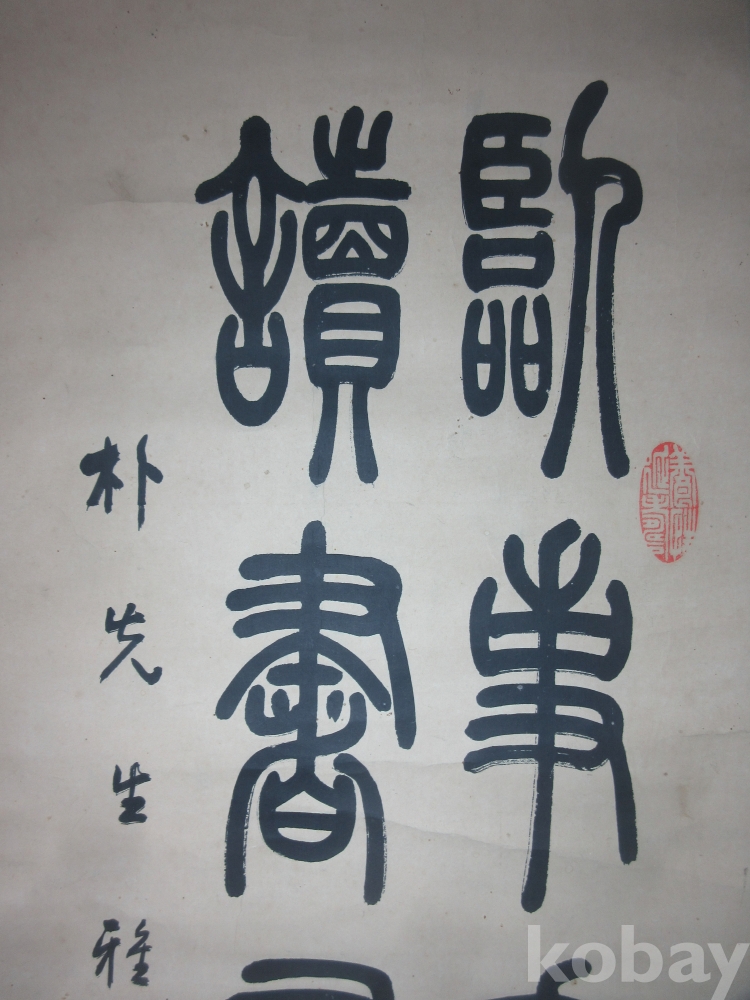 臨事
讀書
朴先生雅
kobay